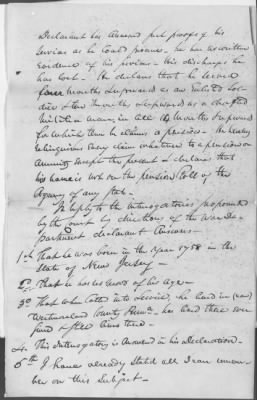 Declarant has Annexed such proofs of his
Service as he Could procure. he has no written
evidence of his services. his discharge he
has lost. He declares that he served
four months & upwards as an Enlisted Sol-
dier & two months & upwards as a drafted
Militia man, in all six months & upward
for which term he claims a pension. He hereby
relinquishes every claim whatever to a pension or
annuity except the present & declares that
his name is not on the pension Roll of the
Agency of any State.
In reply to the Interogatories propounded
by the court by directions of the War De-
partment declarant Answers
1st That he was born in the year 1758 in the
State of New Jersey -
2nd That he has no record of his Age -
3d That when Called into Service he lived in (now)
Westmoreland County Penna. - has lived there ever
since & still lives there -
4. This Interogatory is Answered in his declaration -
5th I have already stated all I can remem-
ber on this subject -